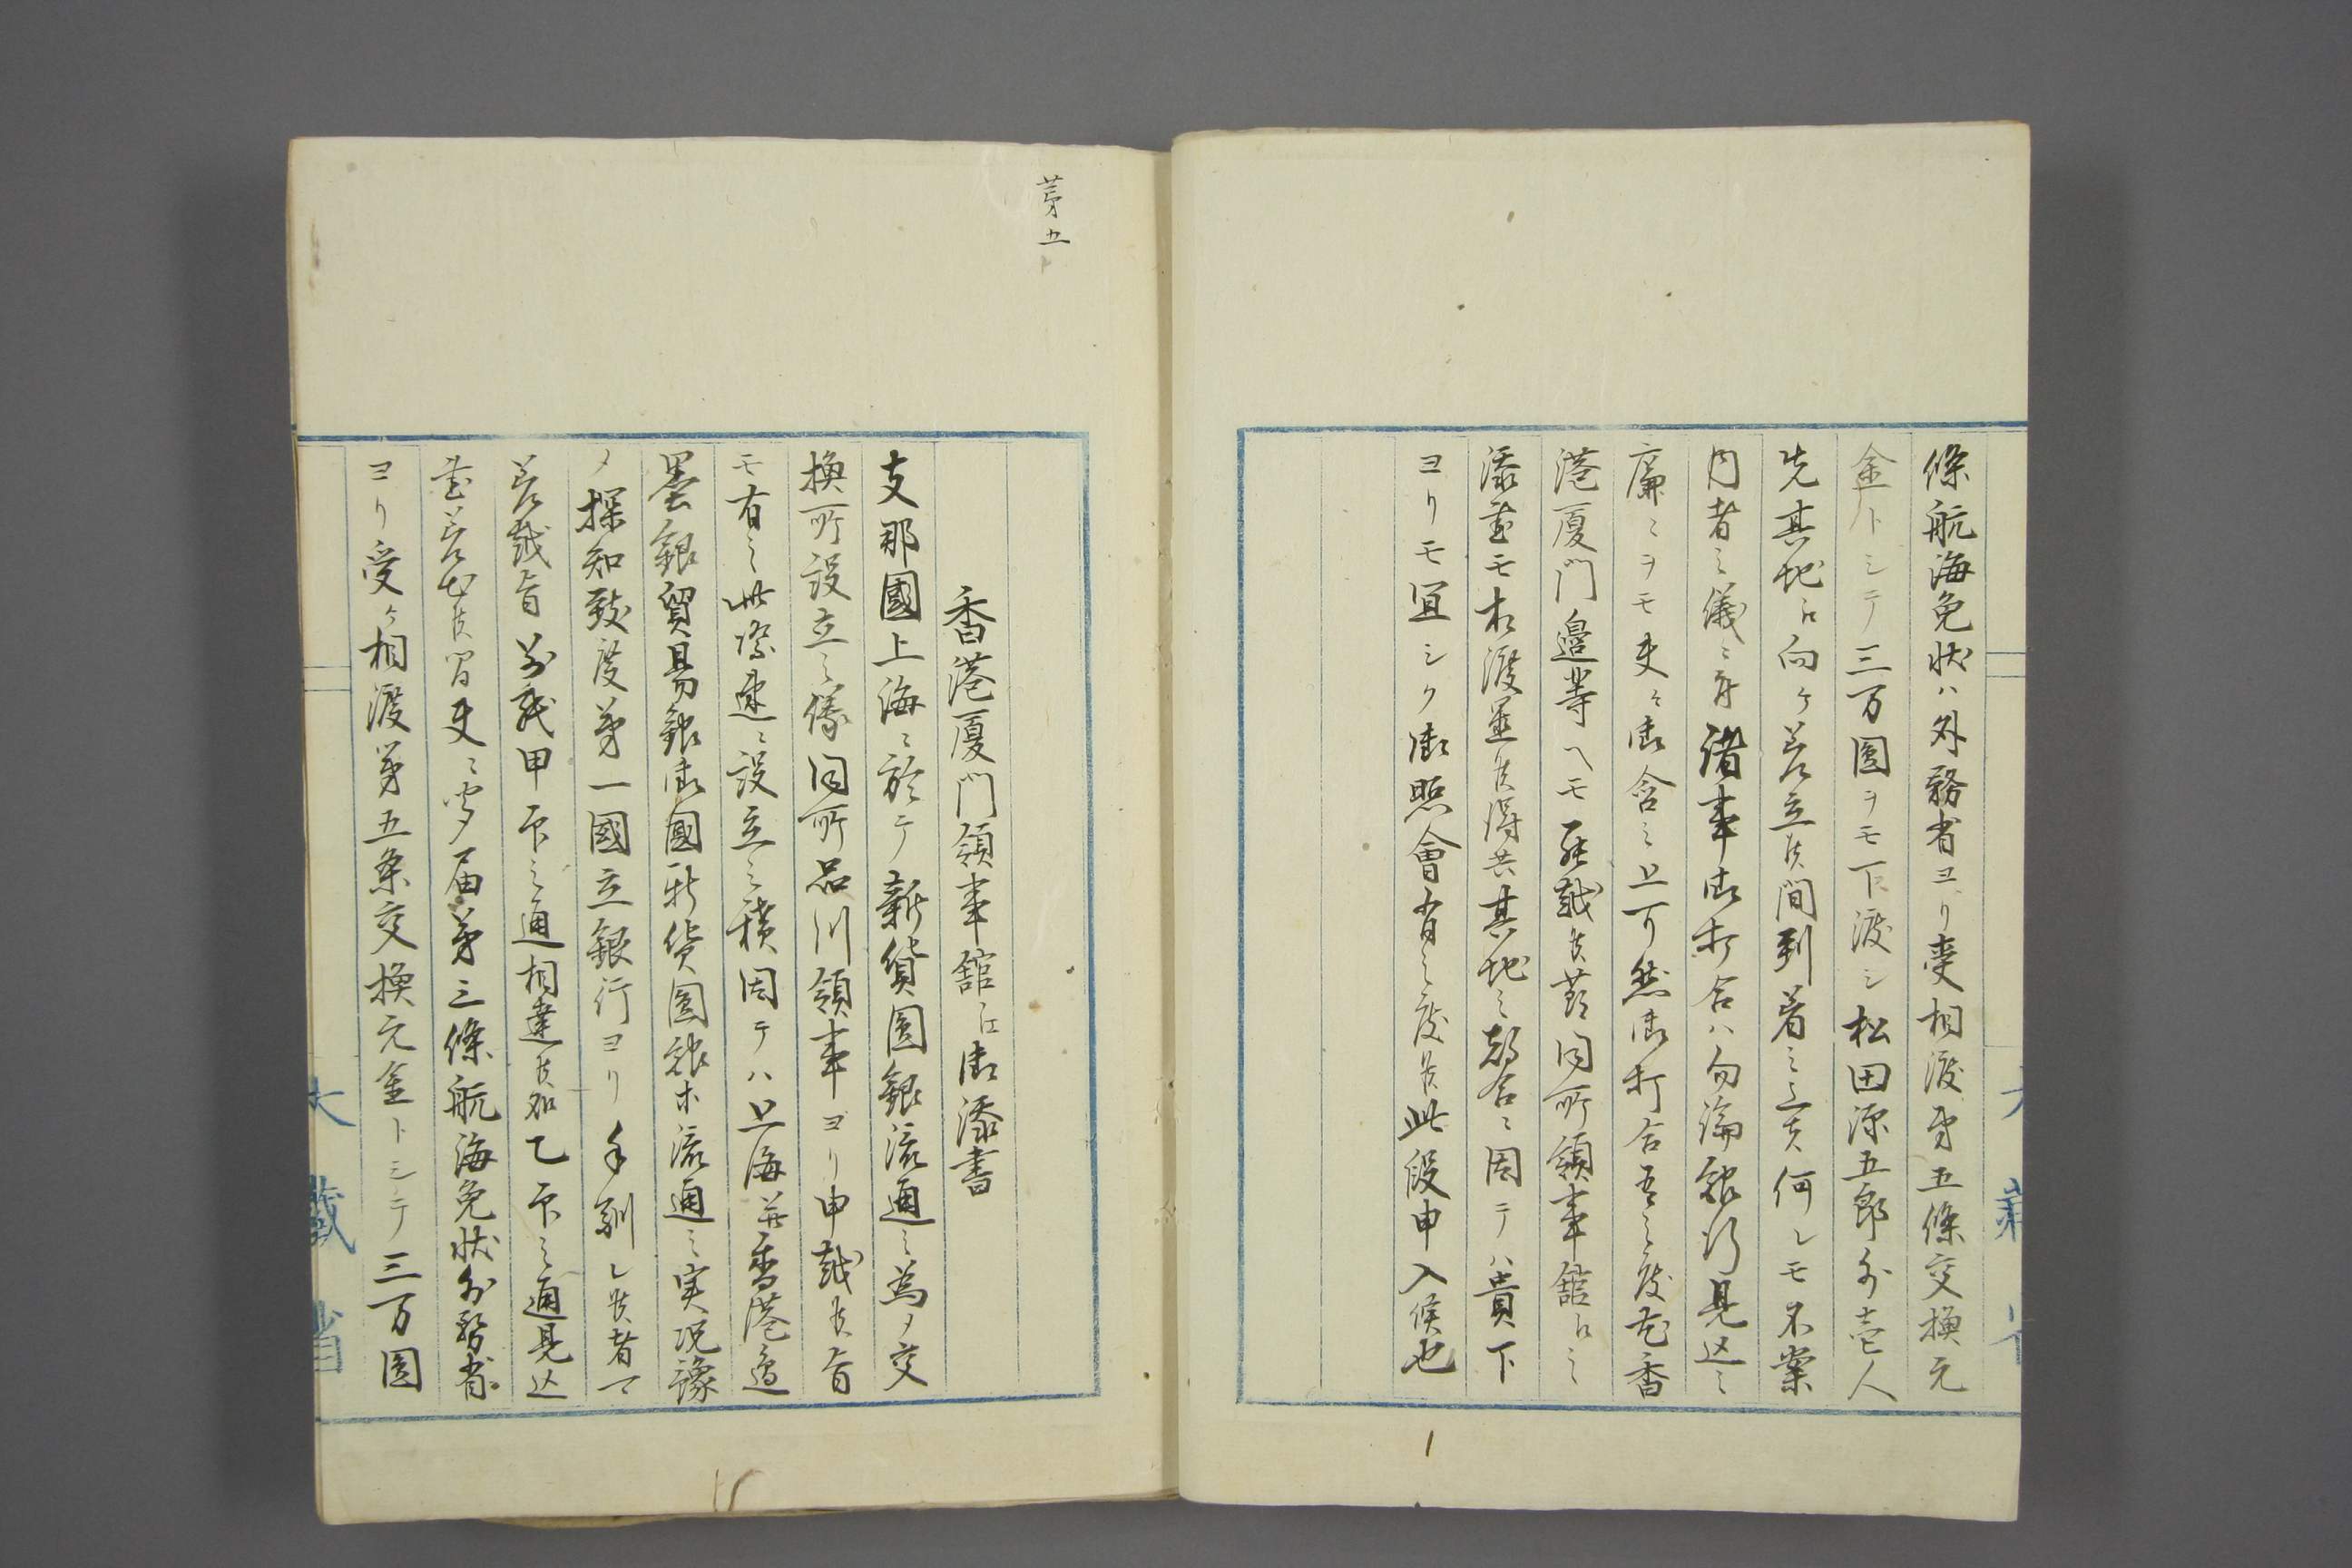 條航海免状ハ外務省ヨリ受相渡第五條交換元
金トシテ三万圓ヲモ下渡シ松田源五郎外壱人
先其地ヘ向ケ差立候間到着之上ハ何レモ不案
内者之儀ニ付諸事御打合ハ勿論銀行見込之
廉々ヲモ更ニ御含之上可然御打合有之度尤香
港厦門邉等ヘモ罷越候筈同所領事舘ヘ之
添書モ相渡置候得共其地之都合ニ因テハ貴下
ヨリモ宜シク御照會有之度候此段申入候也
第五
香港厦門領事舘江御添書
支那國上海ニ於テ新貨圓銀流通之為メ交
換所設立之儀同所品川領事ヨリ申越候旨
モ有之此際速ニ設立之積因テハ上海並香港邉
墨銀貿易銀御國新貨圓銀等流通之実况豫
メ探知致度第一國立銀行ヨリ手馴レ候者
差越旨別紙甲印之通相達候処乙印之通見込
書差出候間更ニ聞届第三條航海免状外務省
ヨリ受ケ相渡第五条交換元金トシテ三万圓
大藏省